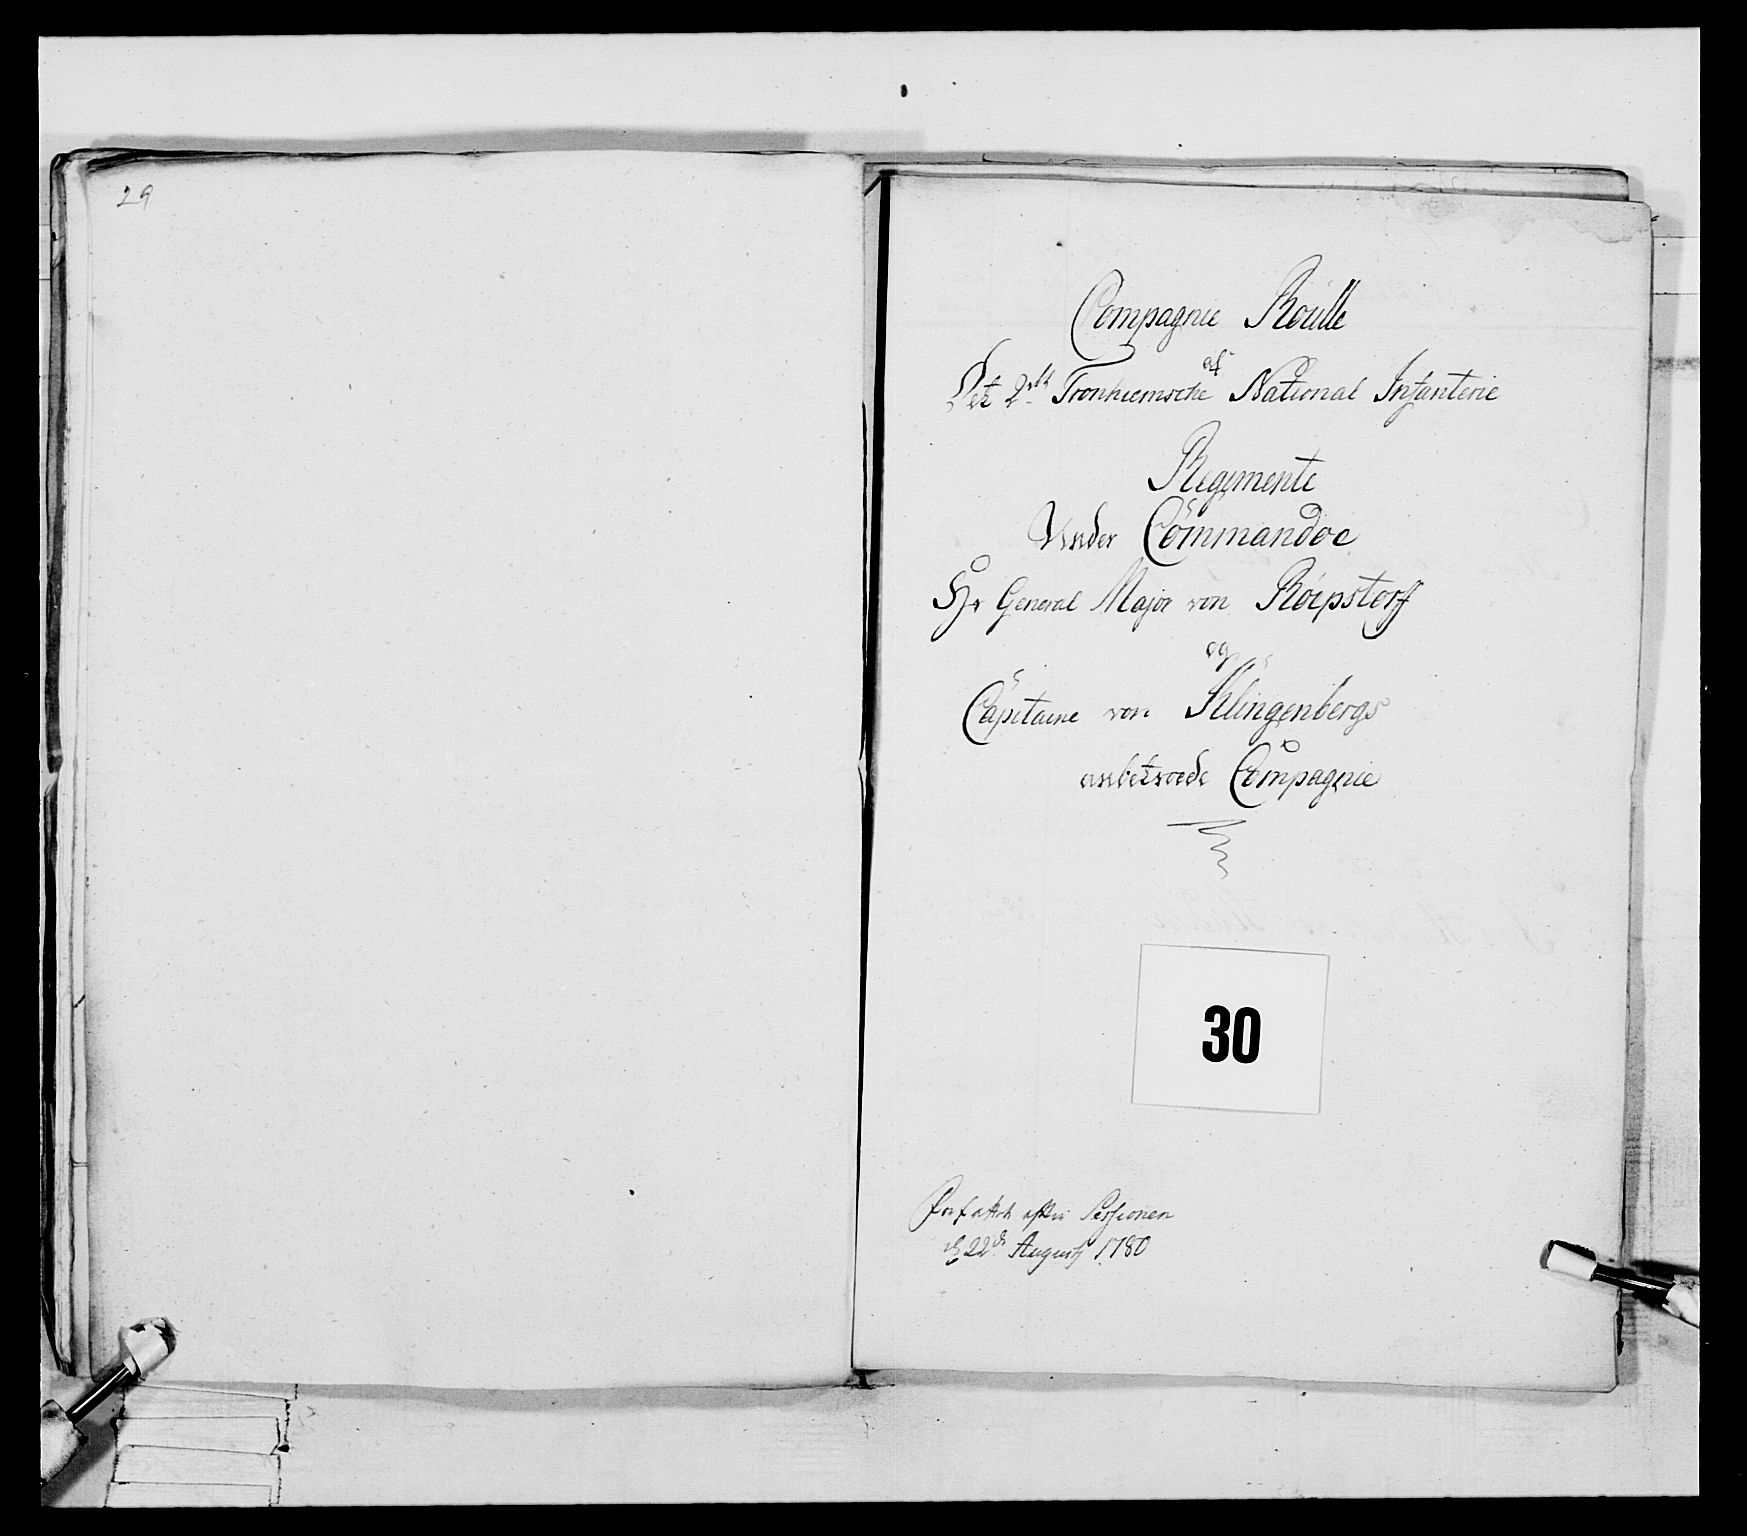 29
Compagnie Roulle
af
Det 2det Tronhiemsche National Infanterie
Regimente
Under Commandoe
Hr General Major von Röepstorff
og
Capitaine von Klingenbergs
anbetroede Compagnie
30
Forfattet efter Sessionen
d. 22de August 1780